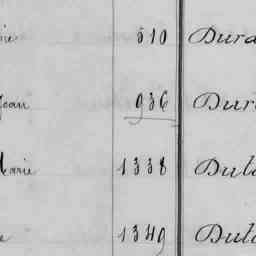 510 Dura
Jean 936 Dur
Marie 1338 Dul
1349 Dul